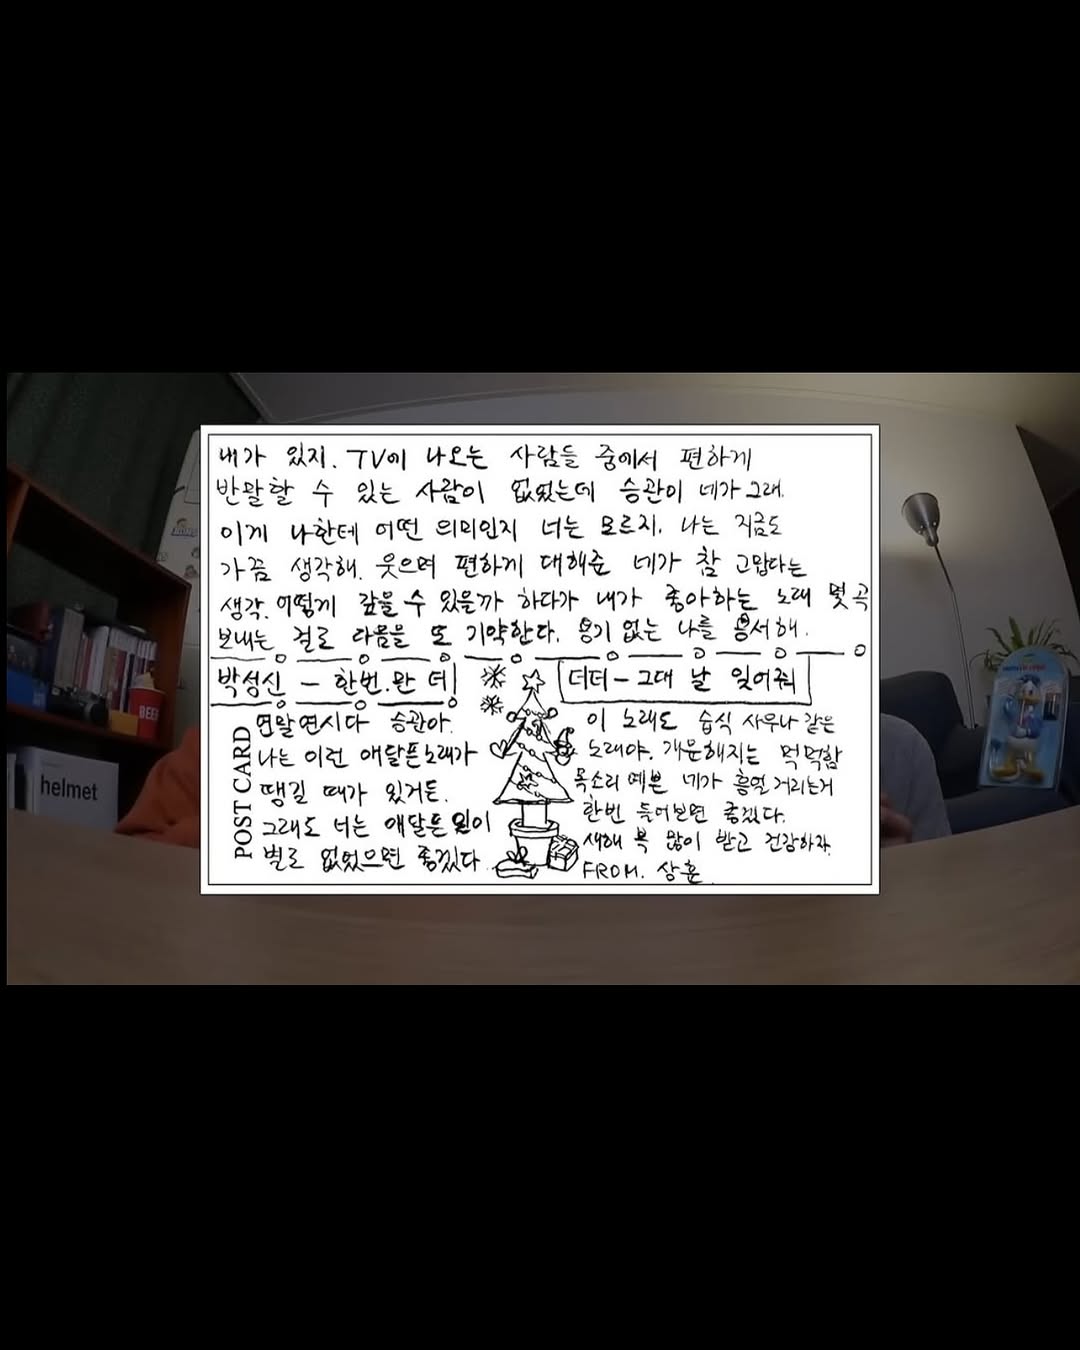 내가 있지. TV에 나오는 사람들 중에서 편하게
반말할 수 있는 사람이 없었는데 승관이 네가 그래.
이게 나한테 어떤 의미인지 너는 모르지. 나는 지금도
가끔 생각해. 웃으며 편하게 대해준 네가 참 고맙다는
생각. 어떻게 갚을 수 있을까 하다가 내가 좋아하는 노래 몇곡
보내는 걸로 다음을 또 기약한다. 용기 없는 나를 용서해.
박성신 - 한번만 더
연말연시다 승관아.
나는 이런 애달픈노래가
땡길 때가 있거든.
그래도 너는 애달픈 일이
별로 없었으면 좋겠다
더더 - 그대 날 잊어줘
이 노래도 습식 사우나 같은
노래야. 개운해지는 먹먹함
목소리 예쁜 네가 흥얼거리는거
한번 들어보면 좋겠다.
새해 복 많이 받고 건강하자.
FROM. 상훈
POST CARD
helmet
BEER